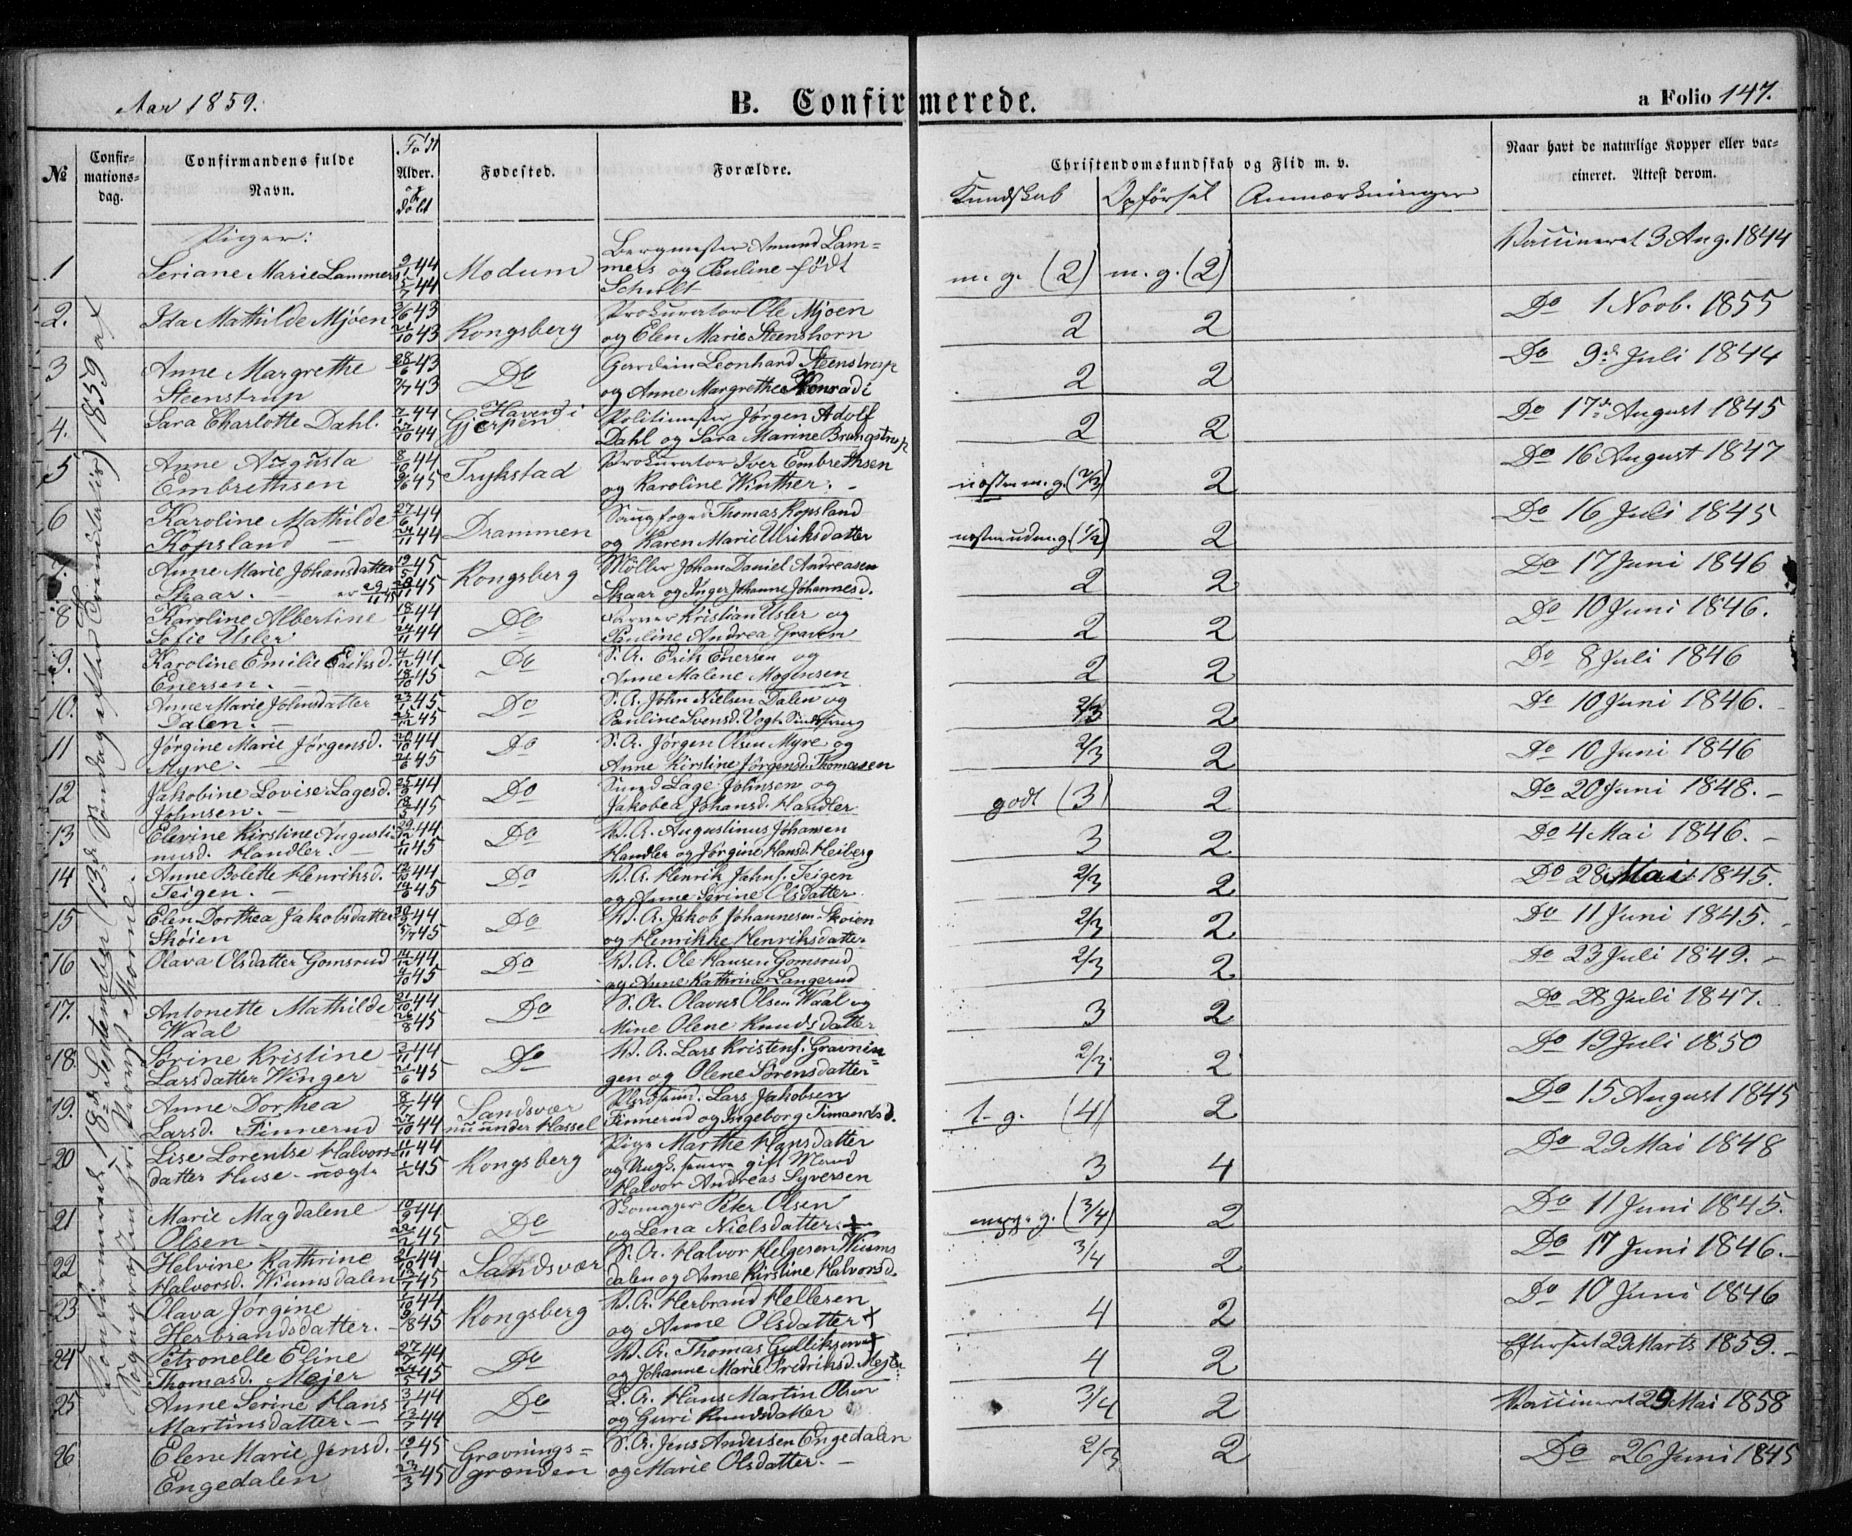 Aar 1859.
B. Confirmerede.
a Folio 147.
№
Confir-
mations-
dag.
Confirmandens fulde
Navn.
Født
Alder.
og
døbt
Fødested.
Forældre.
Christendomskundskab og Flid m. v.
Kundskab
Opførsel
Anmærkninger
Naar havt de naturlige Kopper eller vac-
cineret. Attest derom.
Confirmered 18de September (13de Søndag efter Trinitatis) 1859 af
Sogneprosten
Piger:
1
Seriane Marie Lammers
9/1 44
5/7 44
Modum
Bergmester Amund Lam=
mers og Pauline født
Schult
m. g. (2)
m. g. (2)
Vaccineret 3 Aug. 1844
2.
Ida Mathilde Mjöen
3/6 43
21/10 43
Kongsberg
Prokurator Ole Mjøen
og Elen Marie Steenshorn
2
2
Do 1 Novb. 1855
3
Anne Margrethe
Steenstrup
28/6 43
43
Do
Guardein Leonhard Steenstrup
og Anne Margrethe Konradi
2
2
Do 9de Juli 1844
4.
Sara Charlotte Dahl.
44
27/10 44
Haven i
Gjerpen
Politimester Jørgen Adolf
Dahl og Sara Marine Brangstrup
2
2
Do 17de August 1845
5
Anne Augusta
Embrethsen
8/10 44
9/6 45
Trykstad
Prokurator Iver Embrethsen
og Karoline Winther.
næsten m. g. (2/3)
2
Do 16 August 1847
6
Karoline Mathilde
Kopsland
27/6 44
44
Drammen
Saugfoged Thomas Kopsland
og Karen Marie Ulriksdatter
(1/2)
2
Do 16 Juli 1845
7.
Anne Marie Johansdatter
Skaar.
45
45
Kongsberg
Møller Johan Daniel Andreasen
Skaar og Inger Johanne Johannesd.
2
2
Do 17 Juni 1846
8
Karoline Albertine
Sofie Usler
18/1 44
24/11 44
Do
Farver Kristian Usler og
Pauline Andrea Graven
2
2
Do 10 Juni 1846.
9.
Karoline Emilie Eriksd.
Enersen.
4/12 44
18/10 45
Do
S. A. Erik Enersen og
Anne Malene Mogensen
2
2
Do 8 Juli 1846
10.
Anne Marie Johnsdatter
Dalen.
23/1 45
45
Do
S. A. John Nielsen Dalen og
Pauline Svensd. Vogt
2/3
2
Do 10 Juni 1846.
11
Jørgine Marie Jørgensd.
Myre.
20/10 44
45
Do
S. A. Jørgen Olsen Myre og
Anne Kirstine Jørgensd. Thomasen
2/3
2
Do 10 Juni 1846
12
Jakobine Lovise Lagesd.
Johnsen.
44
45
Do
Lage Johnsen og
Jakobea Johansd. Handler
godt (3)
2
Do 20 Juni 1848.
13
Elevine Kirstine Augusti
nusd. Handler.
44
45
Do
B. A. Augustinus Johansen
Handler og Jørgine Hansd. Heiberg
3
2
Do 4 Mai 1846.
14
Anne Bolette Henriksd.
Teigen.
44
45
Do
B. A. Henrik Jahns. Teigen
og Anne Serine Olsdatter.
2/3
2
Do 28 Mai 1845.
15
Elen Dorthea Jakobsdatter
Skøien
44
5/7 45
Do
B. A. Jakob Johannesen Skøien
og Henrikke Henriksdatter.
2/3
2
Do 11 Juni 1845.
16
Olava Olsdatter Gomsrud
14/12 44
45
Do
B. A. Ole Hansen Gomsrud
og Anne Kathrine Langerud
2/3
2
Do 23 Juli 1849.
17.
Antonette Mathilde
Waal
44
26/8 45
Do
S. A. Olavus Olsen Waal og
Mine Olene Knudsdatter
3
2
Do 28 Juli 1847.
18.
Sørine Kristine
Larsdatter Winger
44
45
Do
B. A. Lars Kristens. Gravnin=
gen og Olene Sørensdatter
2/3
2
Do 19 Juli 1850
19.
Anne Dorthea
Larsd. Finnerud
44
44
Sandsvær
nu under Hassel
Lars Jakobsen
Finnerud og Ingeborg Timandsd.
t. g. (4)
2
Do 15 August 1845
20
Lise Lorentse Halvors-
datter Huse – uægt.
11/11 44
45
Kongsberg
Pige Marthe Hansdatter
og Ungk. senere gift Mand
Halvor Andreas Syversen
3
4
Do 29 Mai 1848
21
Marie Magdalene
Olsen
44
45
Do
Skomager Peter Olsen
og Lena Nielsdatter
(3/4)
2
Do 11 Juni 1845.
22
Helvine Kathrine
Halvorsd. Wiumsdalen
44
45
Sandsvær
S. A. Halvor Helgesen Wiums
dalen og Anne Kirstine Halvorsd.
3/4
2
Do 17 Juni 1846.
23
Olava Jørgine
Herbrandsdatter.
1/10 44
9/8 45
Kongsberg
B. A. Herbrand Hellesen
og Anne Olsdatter +
4
2
Do 10 Juni 1846
24
Petronelle Eline
Thomasd. Mejer
44
45
Do
B. A. Thomas Gulliksen +
og Johanne Marie Fredriksd. Mejer
4
2
Efterseet 29 Marts 1859.
25
Anne Serine Hans
Martinsdatter.
44
44
Do
L. A. Hans Martin Olsen
og Guri Knudsdatter
3/4
2
Vaccineret 29 Mai 1858
26
Elene Marie Jensd.
Engedalen
45
23/3 45
Gravnings=
grenden
S. A. Jens Andersen Engedalen
og Marie Olsdatter.
2/3
2
Do 26 Juni 1845